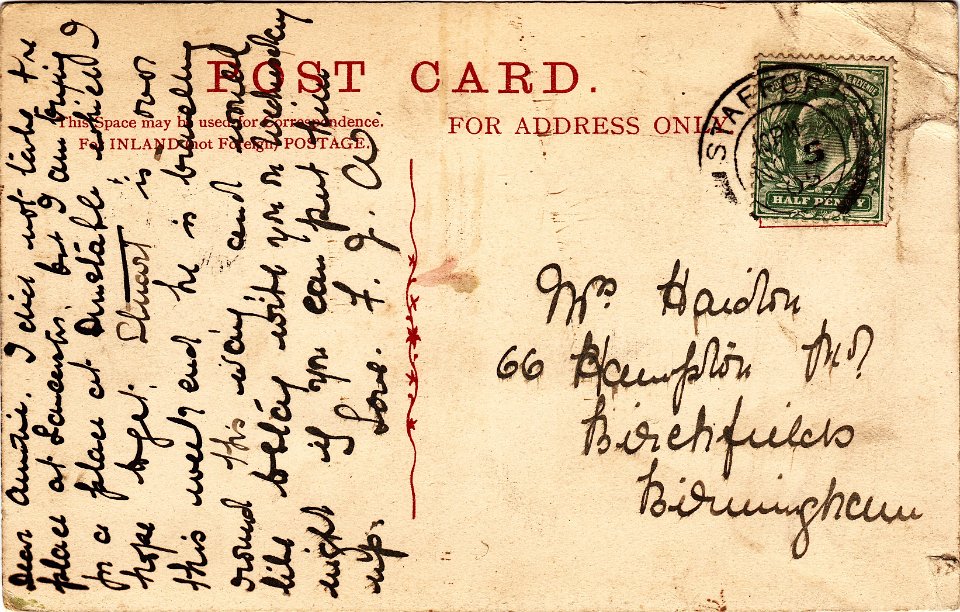 POST CARD.
This Space may be used for Correspondence.
For INLAND (not Foreign) POSTAGE.
FOR ADDRESS ONLY
STAFFORD
5
HALF PENNY
Mrs Haidon
66 Hampton Rd
Birchfields
Birmingham
Dear Auntie. I did not take the
place at but I am trying
for a place at which I
hope to get. Stuart is over
this week end he is
round this way and would
like to stay with you on Wednesday
night if you can put him
up. Love. F. J.